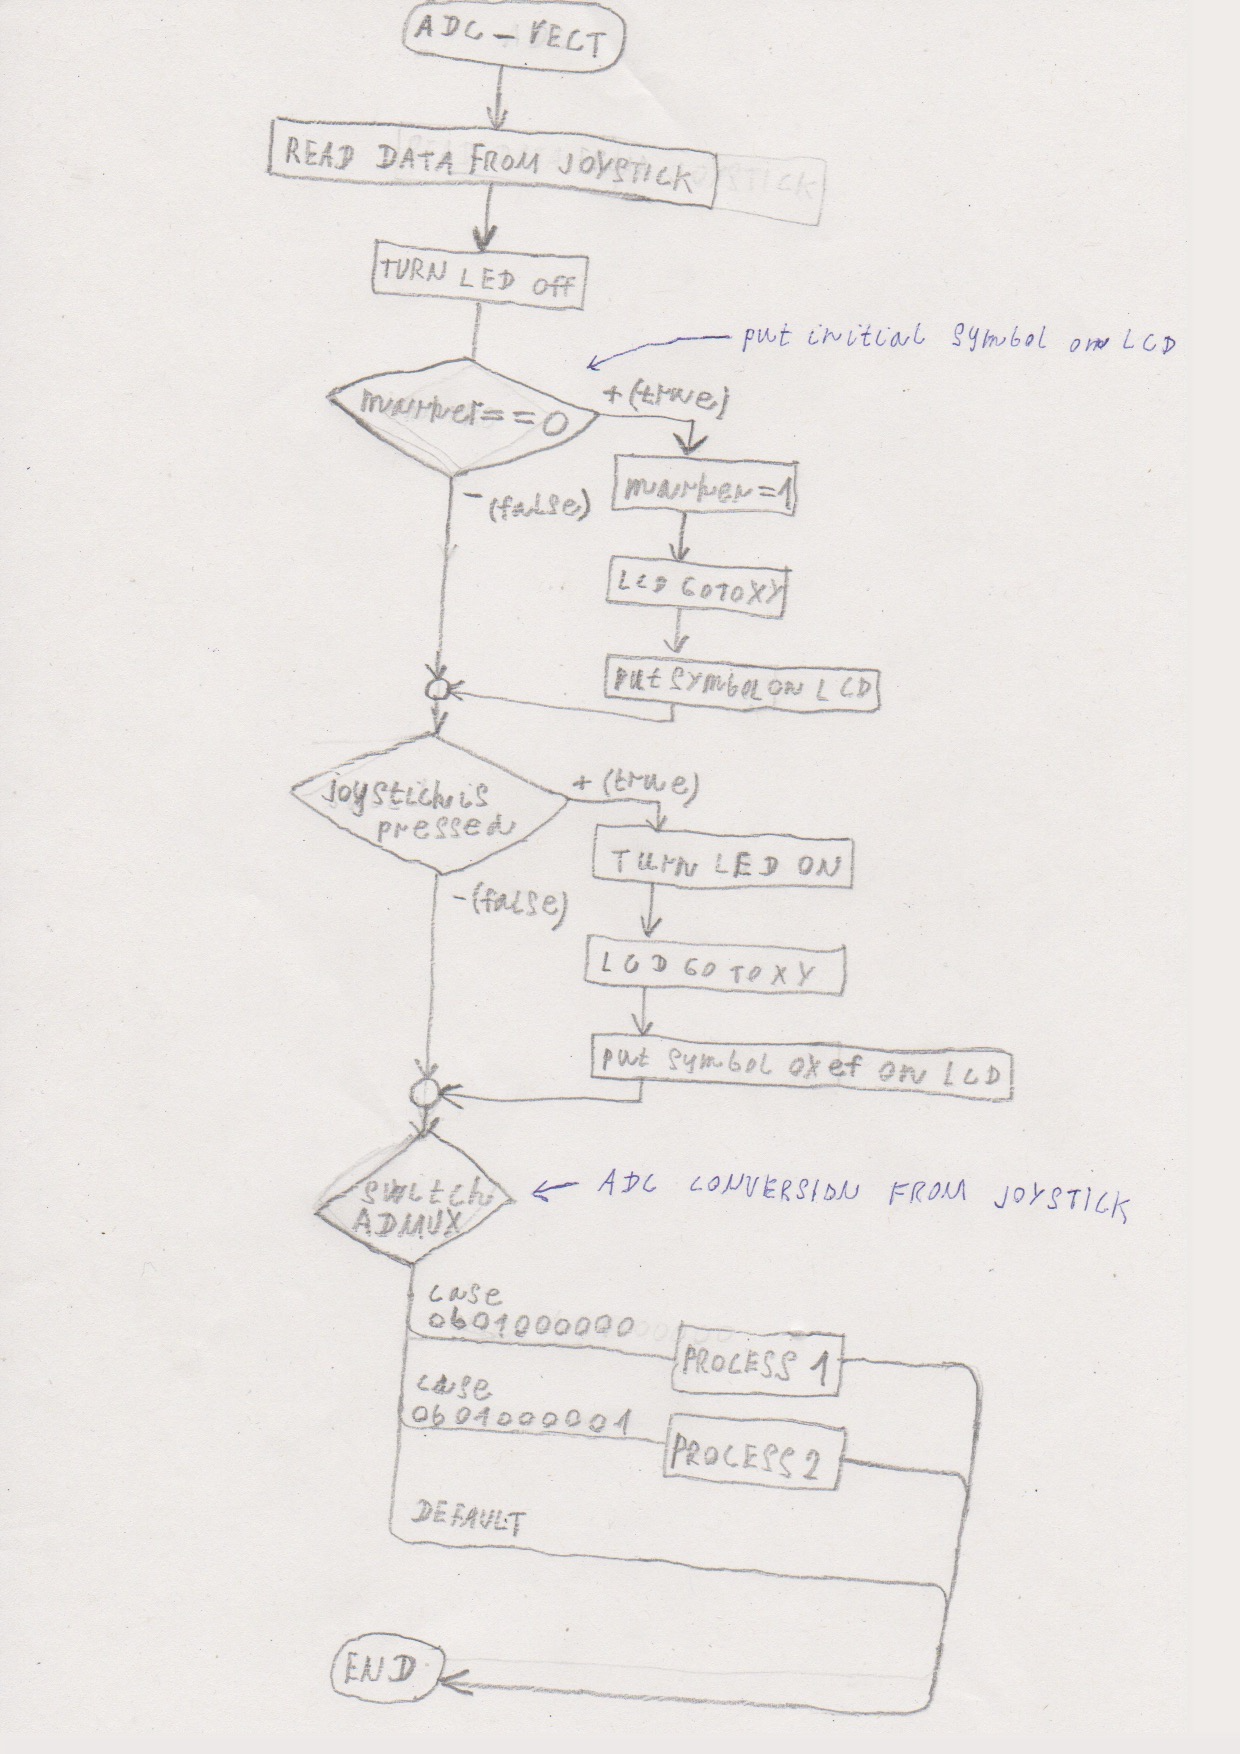 ADC_VECT
READ DATA FROM JOYSTICK
TURN LED off
put initial symbol on LCD
marker==0
+(true)
-(false)
marker=1
LCD GOTOXY
put symbol on LCD
joystick is
pressed
+(true)
-(false)
Turn LED ON
LCD GOTOXY
put symbol 0xef on LCD
switch
ADMUX
ADC CONVERSION FROM JOYSTICK
case
0b01000000
PROCESS 1
case
0b01000001
PROCESS 2
DEFAULT
END